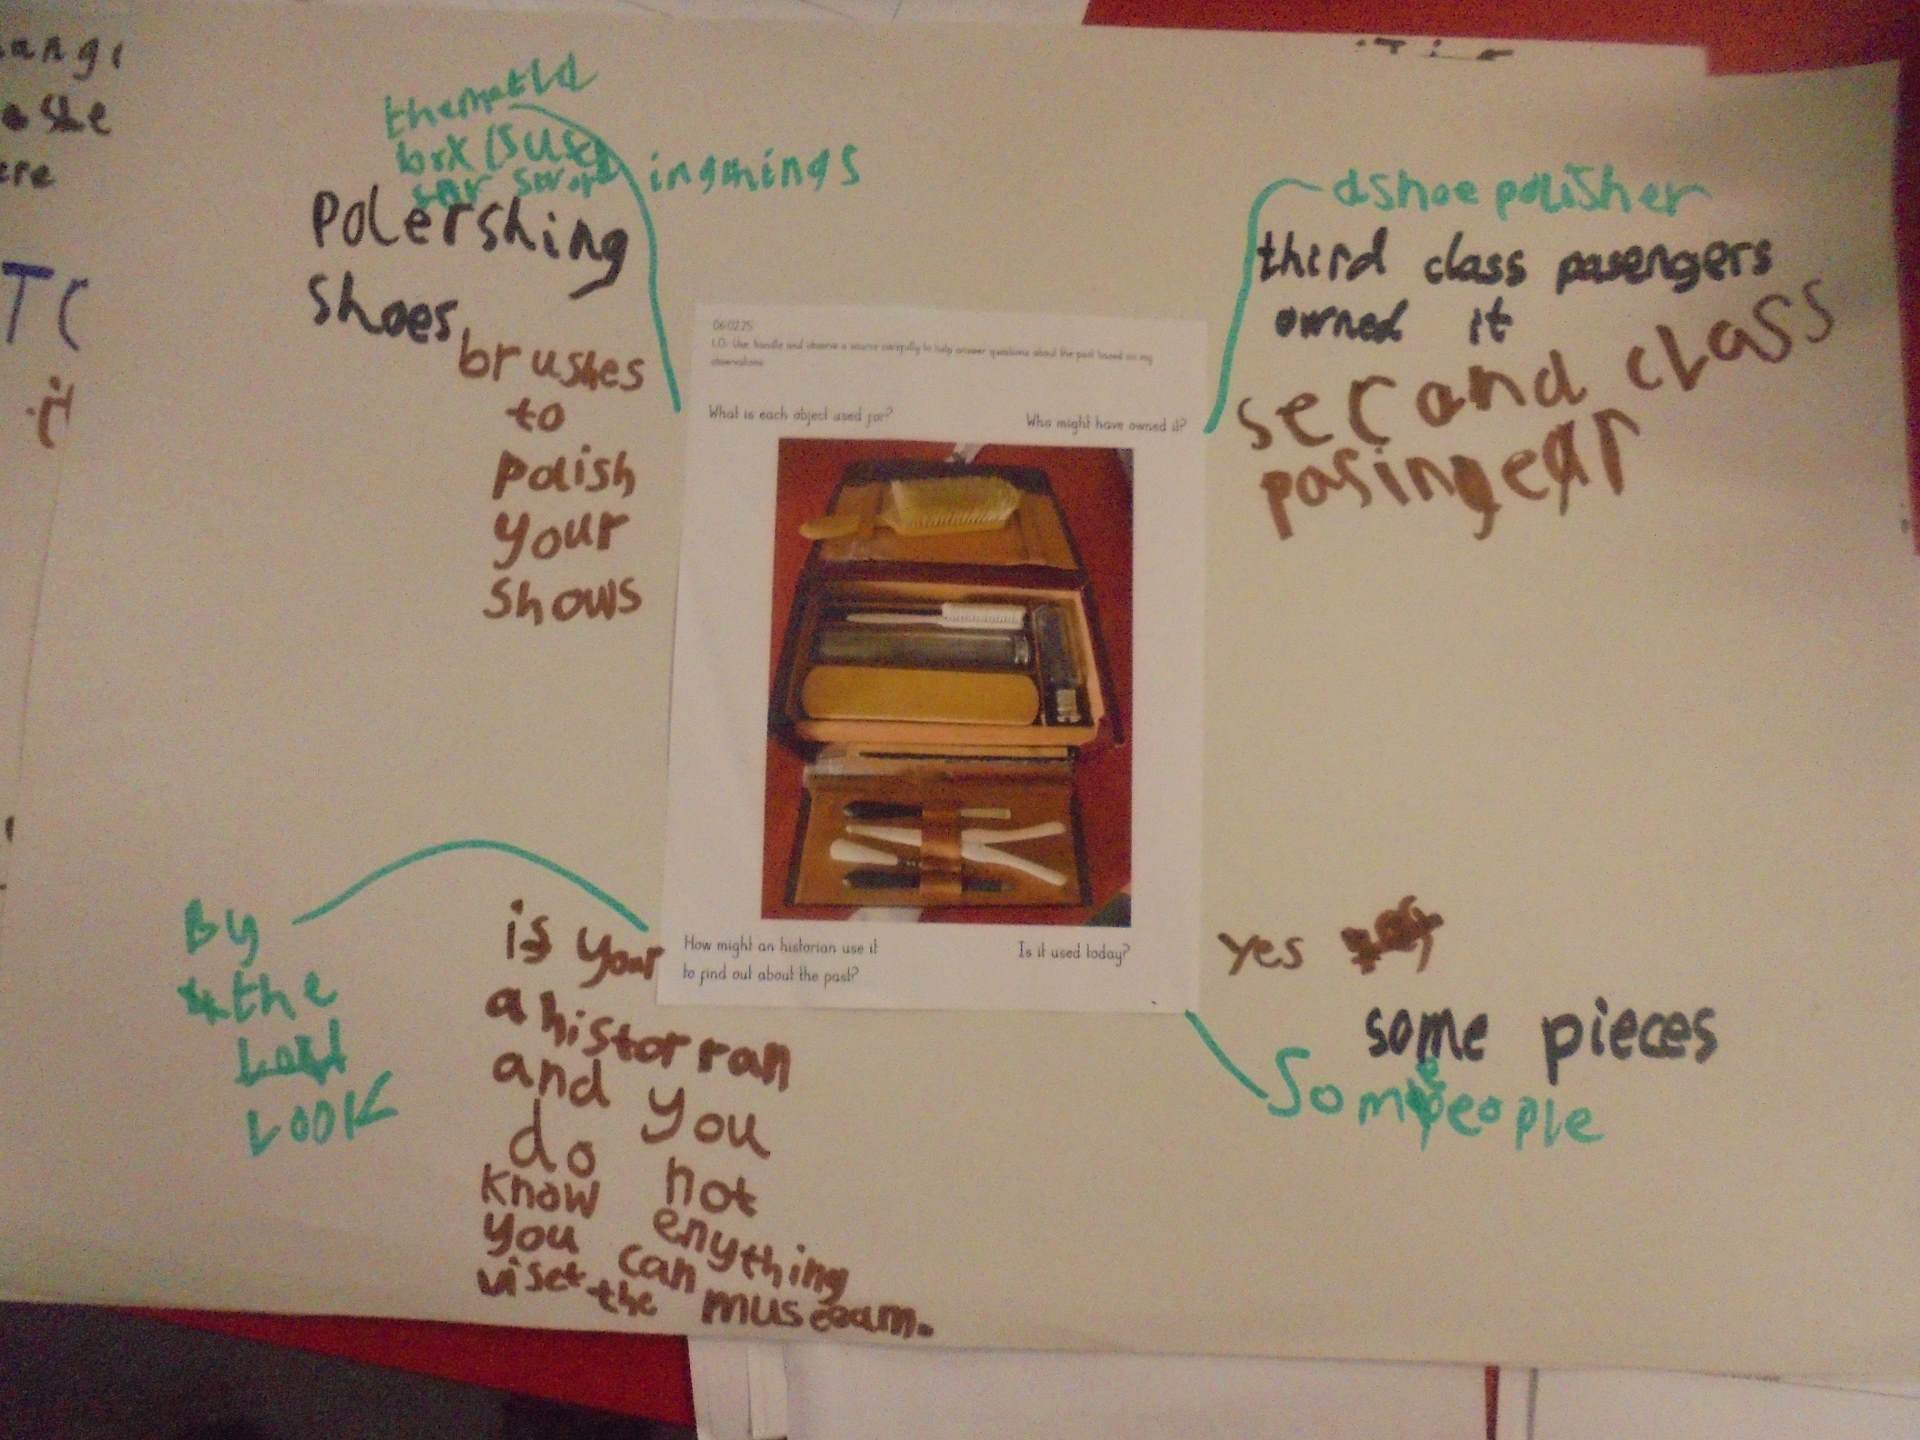 the metld
box is used
ingthings
Polershing
shoes
brushes
to
polish
your
shows
a shoe polisher
third class pasengers
owned it
secand class
pasingear
06.02.25
L.O: Use, handle and observe a source carefully to help answer questions about the past based on my
observations
What is each object used for?
Who might have owned it?
How might an historian use it
to find out about the past?
Is it used today?
By
the
Look
is your
a historran
and you
do not
know enything
you can
viset the museeam.
yes
some pieces
Some people
ange
she
ere